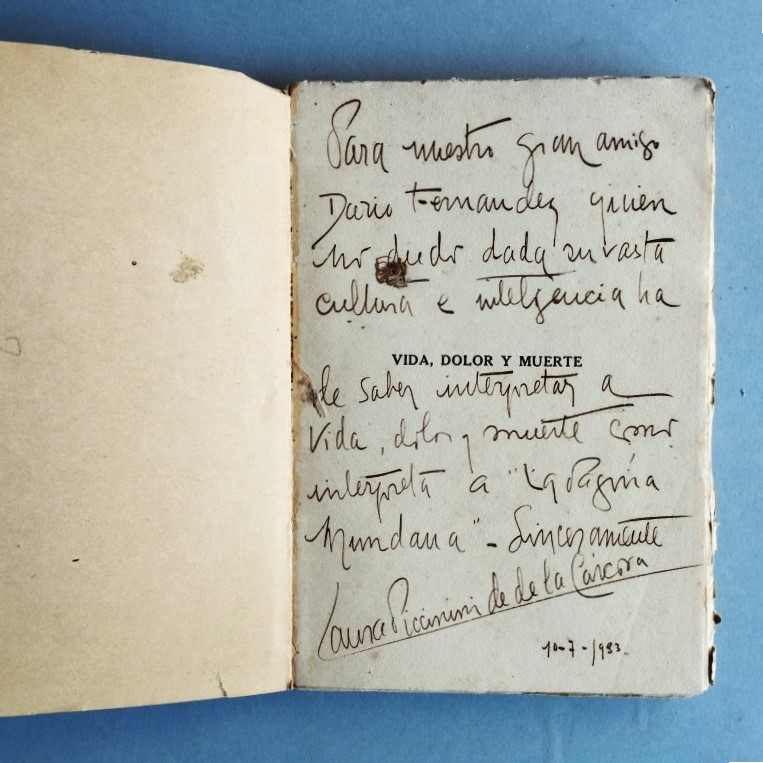 Para nuestro gran amigo
Dario Fernandez quien
no dudo dada su vasta
cultura e inteligencia ha
VIDA, DOLOR Y MUERTE
de saber interpretar a
Vida, dolor y muerte como
interpreta a "La Página
Mundana" - Sinceramente
Laura Piccinini de de la Cárcova
10-7-1933.